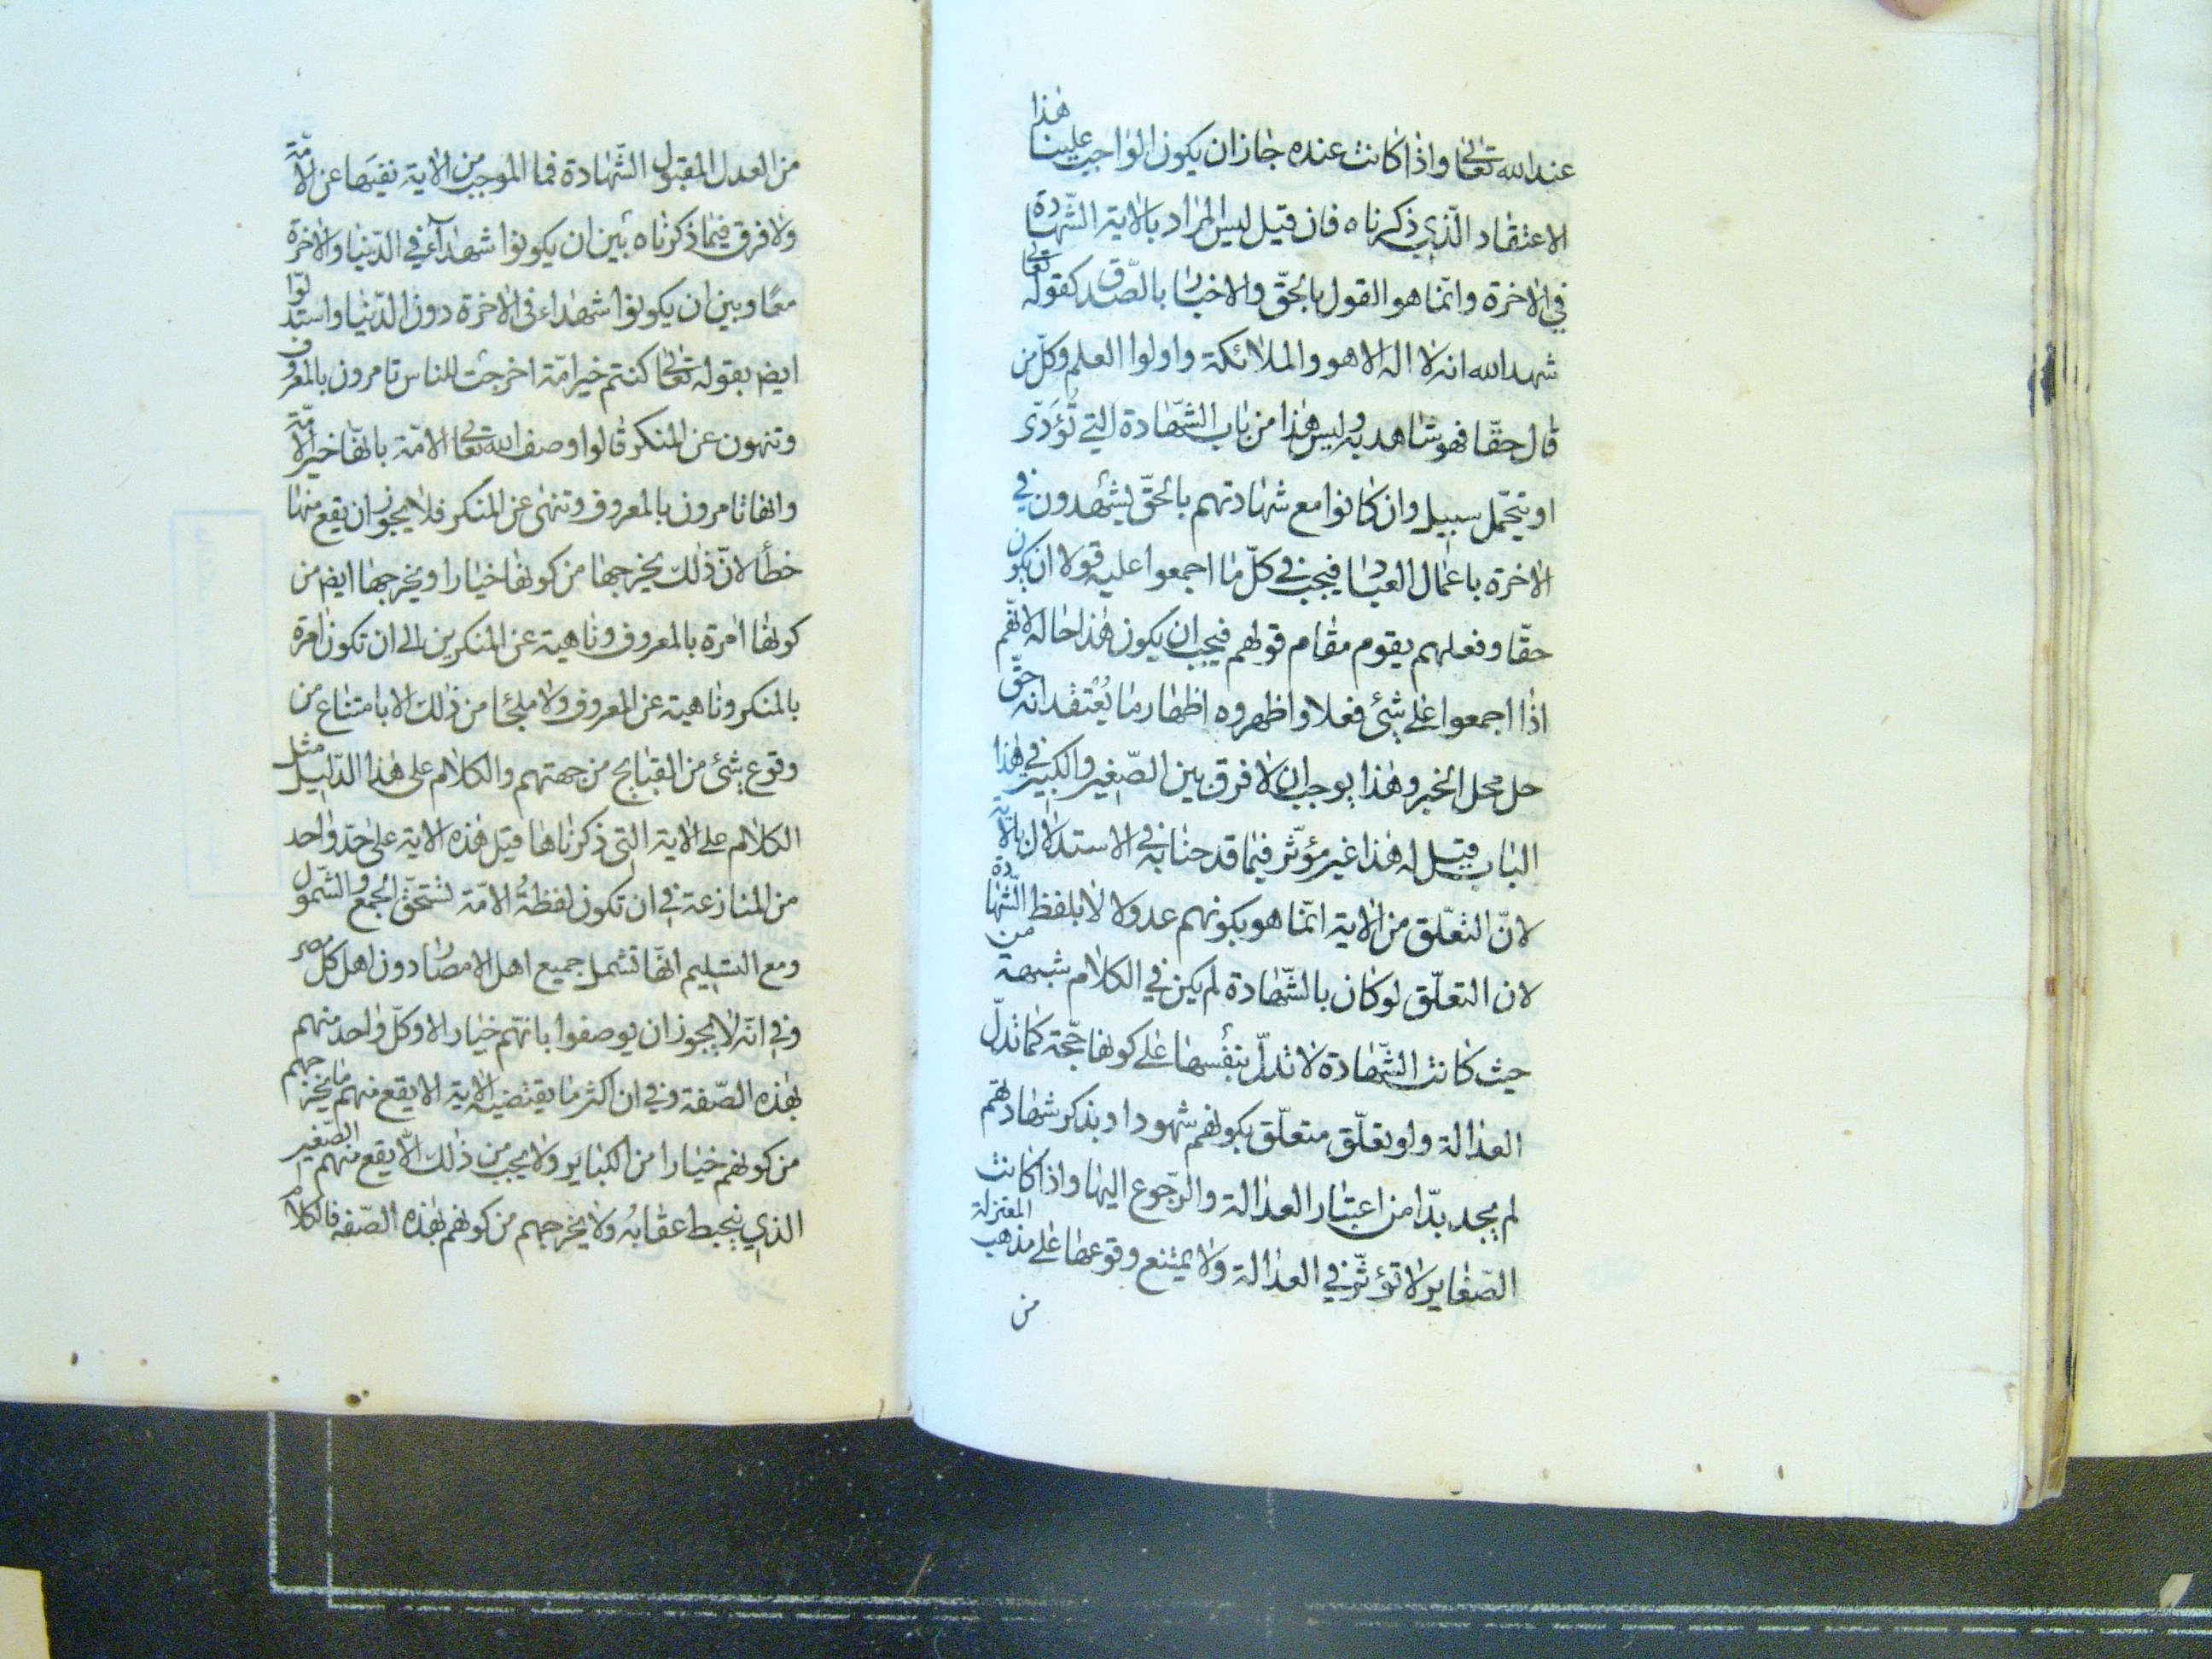 عند الله تعالى واذا كانت عنده جاز ان يكون الواجب علينا هذا
الاعتقاد الّذى ذكرناه فان قيل ليس المراد بالاية الشّهادة
في الاخرة وانّما هو القول بالحقّ والاخبار بالصّدق كقوله تعالى
شهد الله انه لا اله الا هو والملائكة واولوا العلم وكلّ من
قال حقّا فهو شاهد به وليس هذا من باب الشّهادة التي تُؤَدّى
او تتحّمل سبيل وان كانوا مع شهادتهم بالحقّ يشهدون في
الاخرة باعمال العباد فيجب في كلّ ما اجمعوا عليه قولا ان يكون
حقّا وفعلهم يقوم مقام قولهم فيجب ان يكون هذا حاله لانّهم
اذا اجمعوا على شئ فعلا واظهروه اظهار ما يُعتقد انه حقّ
حل محل الخبر وهذا يوجب ان لا فرق بين الصّغير والكبير في هذا
الباب قيل له هذا غير مؤثّر فيما قدحنا به في الاستدلال بالاية
لانّ التعّلق من الاية انّما هو بكونهم عدولا لا بلفظ الشّهادة
لان التعلّق لو كان بالشّهادة لم يكن في الكلام شبهة من
حيث كانت الشّهادة لا تدلّ بنفسها على كونها حجّة كما تدلّ
العدالة ولو تعلّق متعلّق بكونهم شهودا وبذكر شهادتهم
لم يجد بدّا من اعتبار العدالة والرّجوع اليها واذا كانت
الصّغاير لا تؤثّر في العدالة ولا يمتنع وقوعها على مذهب المعتزلة
من
من العدل المقبول الشّهادة فما الموجب من الاية نفيَها عن الامّة
ولا فرق فيما ذكرناه بين ان يكونوا شهداء في الدّنيا والاخرة
معًا وبين ان يكونوا شهداء فى الاخرة دون الدّنيا واستدلّوا
ايض بقوله تعالى كنتم خير امّة اخرجت للناس تامرون بالمعروف
وتنهون عن المنكر قالوا وصف الله تعالى الامّة بانّها خير الامّة
وانها تامرون بالمعروف وتنهى عن المنكر فلا يجوز ان يقع منها
خطأ لانّ ذلك يخرجها من كونها خيارا ويخرجها ايض من
كونها امرة بالمعروف وناهية عن المنكرين الى ان تكون امرة
بالمنكر وناهية عن المعروف ولا ملجئا من ذلك الا بامتناع من
وقوع شئ من القبايح من جهتهم والكلام على هذا الدّليل مثل
الكلام على الاية التى ذكرناها قبل هذه الاية على حدّ واحد
من المنازعة في ان تكون لفظةُ الامّة تستحقّ الجمع والشّمول
ومع التسليم انّها تشمل جميع اهل الامصار دون اهل كل مصر
وفي انّه لا يجوز ان يوصفوا بانّهم خيار الا وكلّ واحد منهم
بهذه الصّفة وفي ان اكثر ما يقتضيه الاية الا يقع منهم ما يخرجهم
من كونهم خيارا من الكباير ولا يجب من ذلك الّا يقع منهم الصّغير
الذي ينحبط عقابُه ولا يخرجهم من كونهم بهذه الصّفه فالكلام